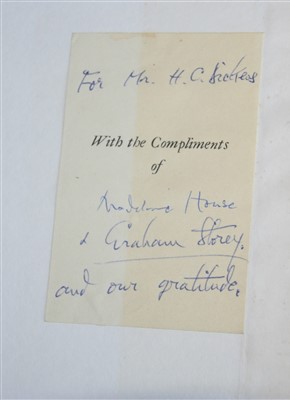 For Mr. H. C. Dickens
With the Compliments
of
Madeline House
& Graham Storey.
and our gratitude.